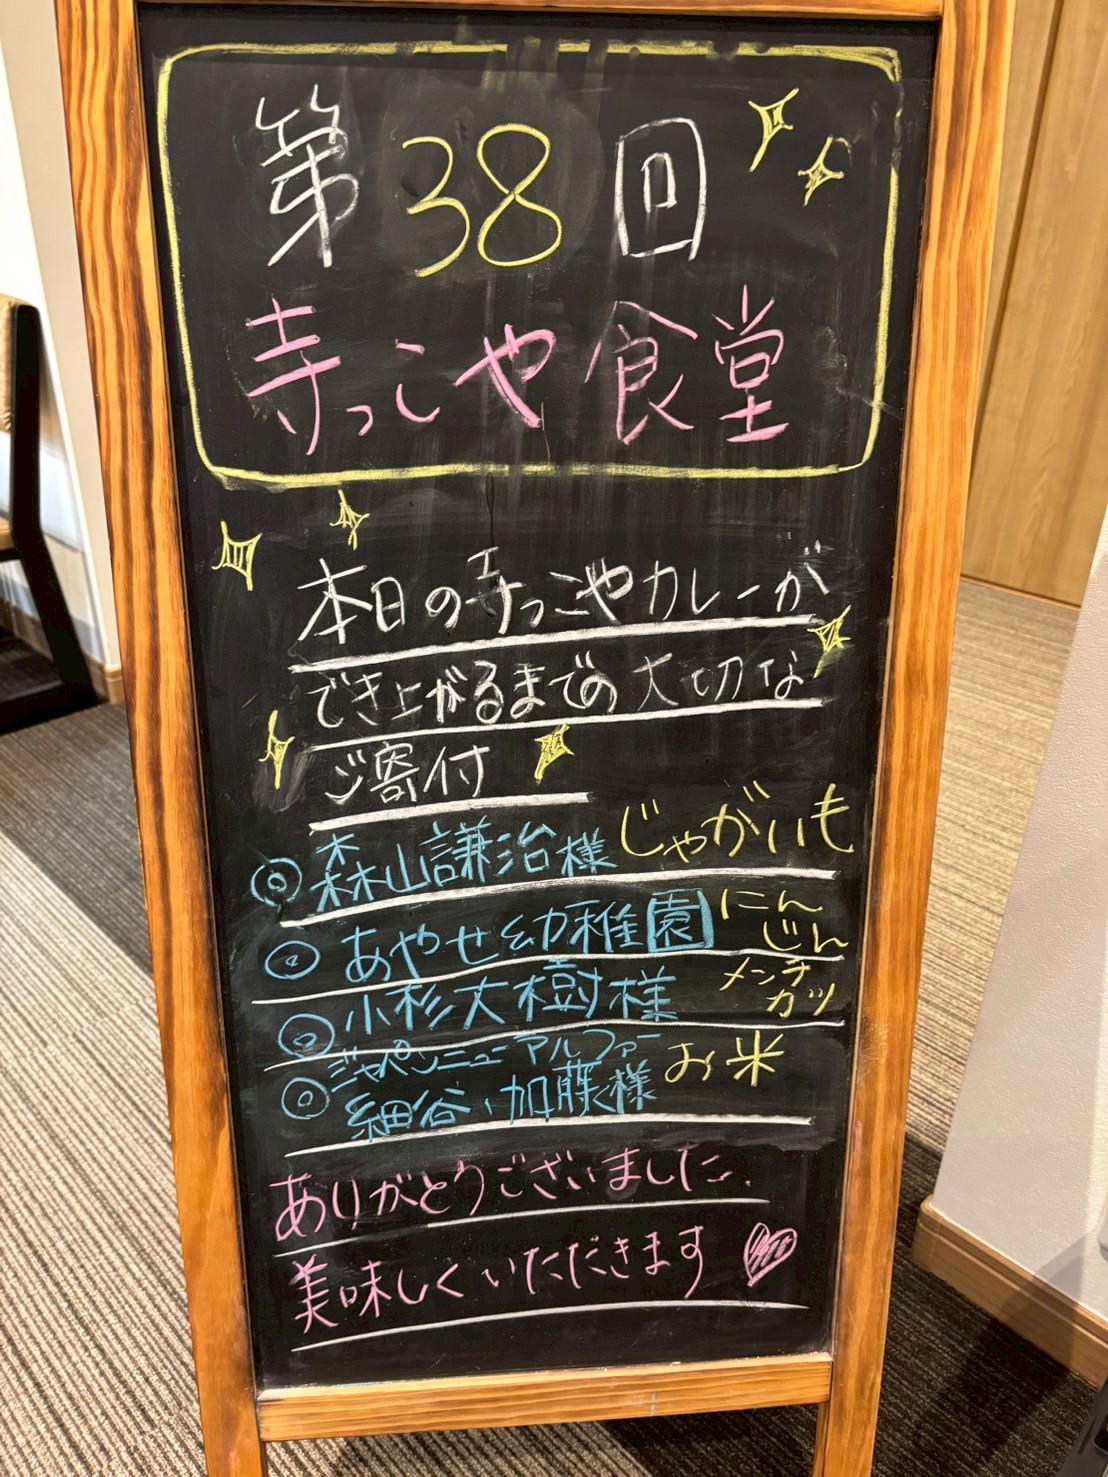 第38回
寺っこや食堂
本日の寺っこやカレーが
でき上がるまでの大切な
ご寄付
◎森山謙治様 じゃがいも
◎あやせ幼稚園 にんじん
◎小杉大樹様 メンチカツ
◎ジャパンニューアルファー
細谷・加藤様 お米
ありがとうございました.
美味しくいただきます